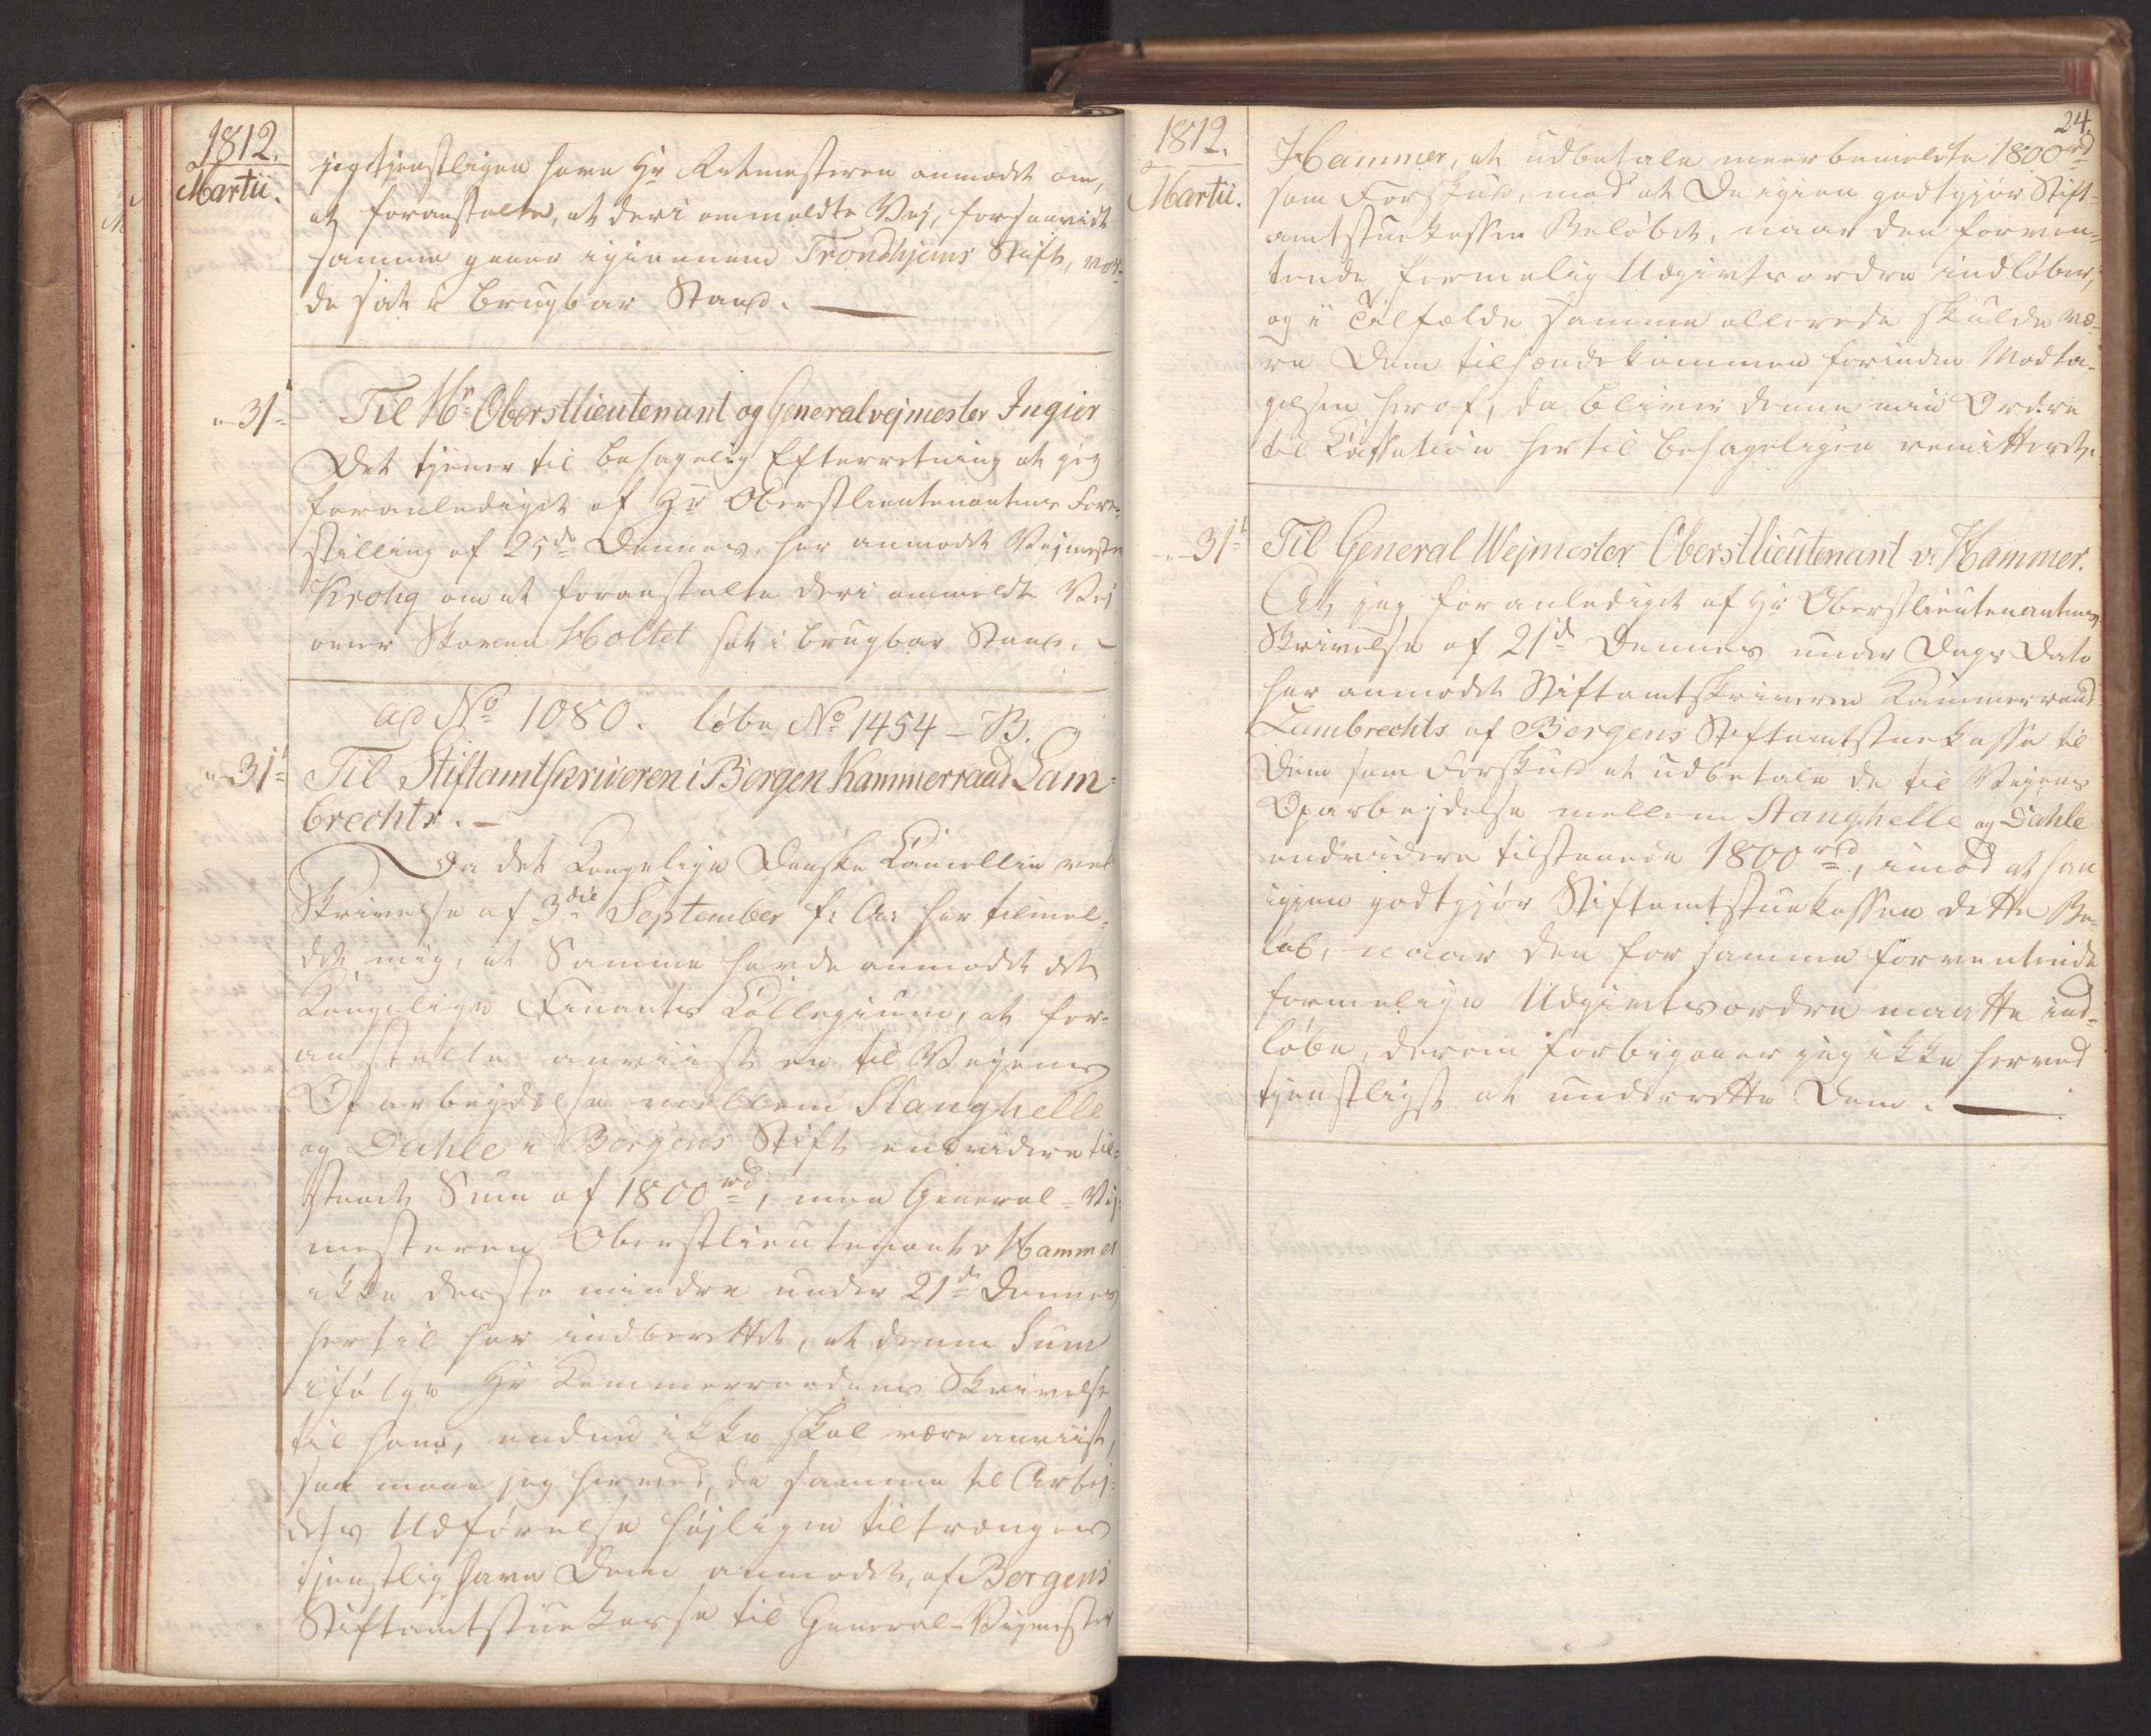 1812.
Martii.
jeg tjenstligen have Hr Ritmesteren anmodet om,
at foranstalte, at deri ommeldte Vej, forsaavidt
samme gaaer igiennem Trondhjems Stift, vor-
de sat i brugbar Stand.
31t
Til Hr Oberstlieutenant og Generalvejmester Ingier
Det tjener til behagelig Efterretning at jeg
foranlediget af Hr Oberstlieutenantens Fore-
stilling af 25de Dennes, har anmodet Vejmester
Krohg om at foranstalte deri ommeldte Vej
over Skoven Holtet sat i brugbar Stand.
ad No 1080. løbe No 1454 - B.
31t
Til Stiftamtskriveren i Bergen Kammerraad Lam-
brechts.
Da det Kongelige Danske Cancellie ved
Skrivelse af 3die September f: A: har tilmel-
det mig, at Samme havde anmodet det
Kongelige Finants Collegium, at for-
anstalte anviist en til Vejens
Oparbejdelse mellem Stanghelle
og Dahle i Bergens Stift endvidere til-
staaet Sum af 1800 rd, men General-Vej-
mesteren Oberstlieutenant v Hammer
ikke desto mindre under 21de Dennes
hertil har indberettet, at denne Sum
ifølge Hr Kammerraadens Skrivelse
til ham, endnu ikke skal være anviist,
saa maae jeg herved, da samme til Arbej-
dets Udførelse højligen tiltrænges
tjenstlig have Dem anmodet, af Bergens
Stiftamtstuekasse til General-Vejmester
1812.
Martii.
24.
Hammer, at udbetale meerbemeldte 1800 rd
som Forskud, mod at De igien godtgjør Stift-
amtstuekassen Beløbet, naar den forven-
tende formelig Udgivtsordre indløber,
og i Tilfælde samme allerede skulde væ-
re Dem tilhændekommen forinden Modta-
gelsen heraf, da bliver denne min Ordre
til Cassation hertil behageligen remitteret.
31t
Til General Wejmester Oberstlieutenant v. Hammer.
At jeg foranlediget af Hr Oberstlieutenantens
Skrivelse af 21de Dennes under Dags Dato
har anmodet Stiftamtskriveren Kammerraad
Lambrechts af Bergens Stiftamtstuekasse til
Dem som Forskud at udbetale de til Vejens
Oparbejdelse mellem Stanghelle og Dahle
endvidere tilstaaede 1800 rd, imod at han
igien godtgjør Stiftamtstuekassen dette Be-
løb, naar den for samme forventende
formelige Udgivtsordre maatte ind-
løbe, derom forbigaaer jeg ikke herved
tjenstligst at underrette Dem.